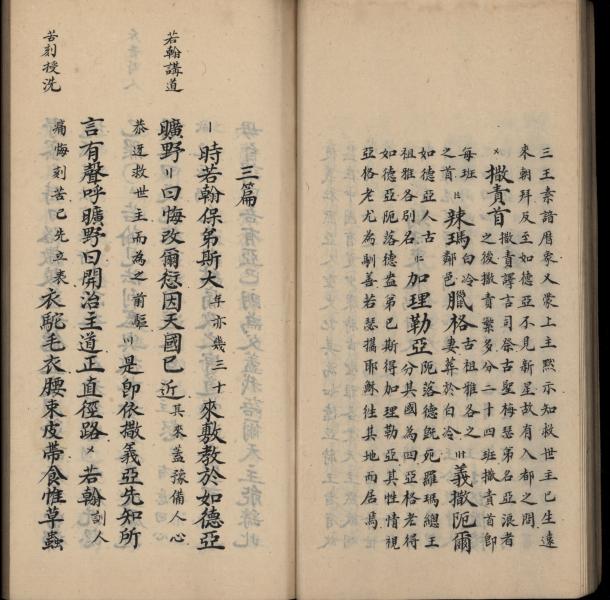 三王素諳曆象又蒙上主默示知救世主已生遠
來朝拜及至如德亞不見新星故有入都之問
撒責首撒責譯言司祭古聖梅瑟弟名亞浪者
之後撒責繁多分二十四班撒責首即
每班之首〢辣瑪白冷鄰邑臘格古祖雅各之妻葬於白冷〣義撒阨爾
如德亞人古祖雅各別名加理勒亞阨落德既死羅瑪總王分其國為四亞格老得
如德亞阨落德益弟巴斯得加理勒亞其性情視
亞格老尤為馴善若瑟攜耶穌往其地而居焉
三篇
〡時若翰保弟斯大年亦幾三十來敷教於如德亞
若翰講道
曠野〢曰悔改爾愆因天國已近其來蓋豫備人心
恭迓救世主而為之前驅〣是即依撒義亞先知所
言有聲呼曠野曰開治主道正直徑路〤若翰刻人
苦刻授洗
痛悔刻苦己先立表衣駝毛衣腰束皮帶食惟草蟲